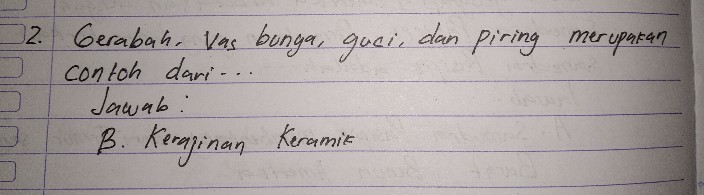 2. Gerabah, Vas bunga, guci, dan piring merupakan
contoh dari...
Jawab :
B. Kerajinan Keramik